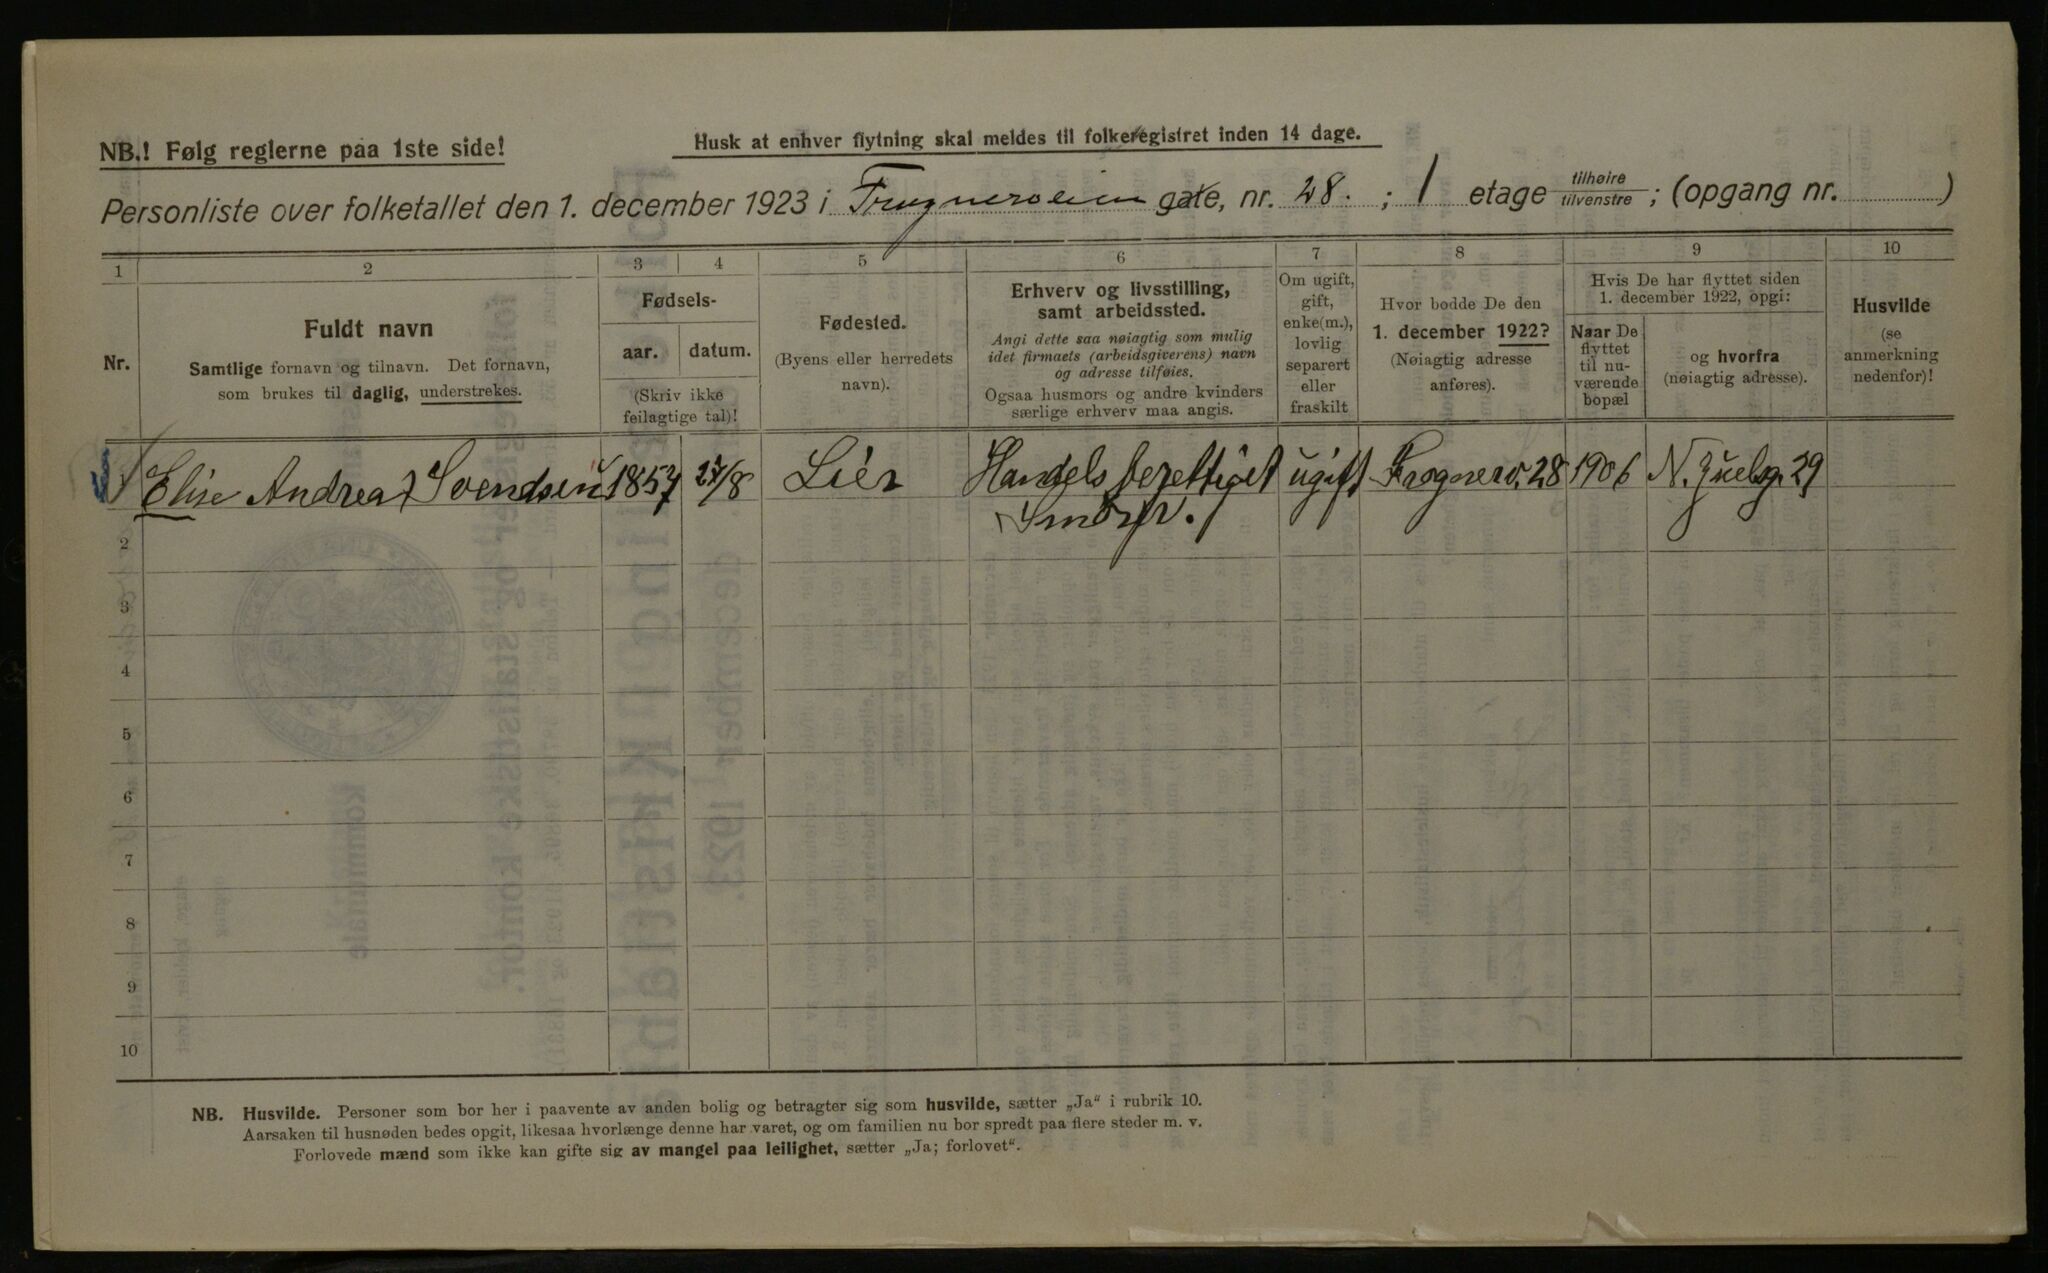 NB.! Følg reglerne paa 1ste side!
Husk at enhver flytning skal meldes til folkeregistret inden 14 dage.
Personliste over folketallet den 1. december 1923 i Frognerveien gate, nr. 28. ; 1 etage tilhøire/tilvenstre ; (opgang nr. )
1 2 3 4 5 6 7 8 9 10
Nr.
Fuldt navn
Samtlige fornavn og tilnavn. Det fornavn,
som brukes til daglig, understrekes.
Fødsels-
aar. datum.
(Skriv ikke
feilagtige tal)!
Fødested.
(Byens eller herredets
navn).
Erhverv og livsstilling,
samt arbeidssted.
Angi dette saa nøiagtig som mulig
idet firmaets (arbeidsgiverens) navn
og adresse tilføies.
Ogsaa husmors og andre kvinders
særlige erhverv maa angis.
Om ugift,
gift,
enke(m.),
lovlig
separert
eller
fraskilt
Hvor bodde De den
1. december 1922?
(Nøiagtig adresse
anføres).
Hvis De har flyttet siden
1. december 1922, opgi:
Naar De
flyttet
til nu-
værende
bopæl
og hvorfra
(nøiagtig adresse).
Husvilde
(se
anmerkning
nedenfor)!
Elise Andrea Svendsen 1857 /8 Lier Handelsberettiget ugift Frognerv. 28 1906 N. Juelsg. 29
2
3
4
5
6
7
8
9
10
NB. Husvilde. Personer som bor her i paavente av anden bolig og betragter sig som husvilde, sætter „Ja“ i rubrik 10.
Aarsaken til husnøden bedes opgit, likesaa hvorlænge denne har varet, og om familien nu bor spredt paa flere steder m. v.
Forlovede mænd som ikke kan gifte sig av mangel paa leilighet, sætter „Ja; forlovet“.